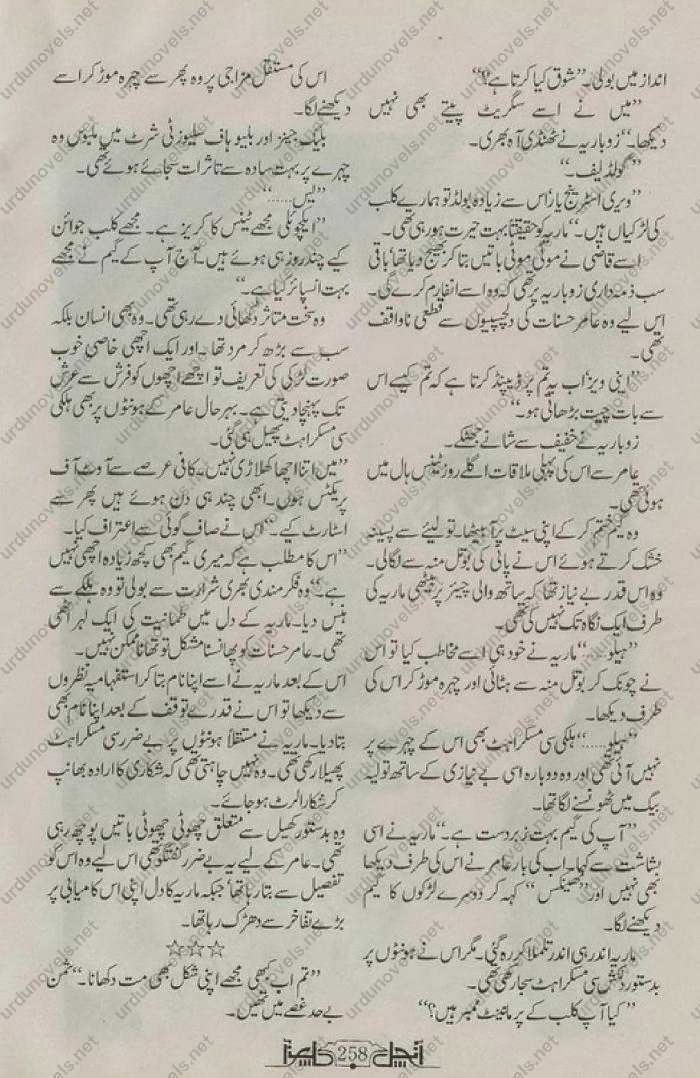 انداز میں بولی۔ ’’شوق کیا کرتا ہے؟‘‘
’’میں نے اسے سگریٹ پیتے بھی نہیں
دیکھا۔‘‘ زوباریہ نے ٹھنڈی آہ بھری۔
’’گولڈ لیف۔‘‘
’’ویری اسٹرینج یار! اس سے زیادہ بولڈ تو ہمارے کلب
کی لڑکیاں ہیں۔‘‘ ماریہ کو حقیقتاً بہت حیرت ہو رہی تھی۔
اسے قاضی نے موٹی موٹی باتیں بتا کر بھیج دیا تھا‘ باقی
سب ذمہ داری زوباریہ پر تھی کہ وہ اسے انفارم کرے گی۔
اس لیے وہ عامر حسنات کی دلچسپیوں سے قطعی ناواقف
تھی۔
’’اینی ویز اب یہ تم پر ڈیپنڈ کرتا ہے کہ تم کیسے اس
سے بات چیت بڑھاتی ہو۔‘‘
زوباریہ نے خفیف سے شانے جھٹکے۔
عامر سے اس کی پہلی ملاقات اگلے روز ٹینس ہال میں
ہوئی تھی۔
وہ گیم ختم کر کے اپنی سیٹ پر آ بیٹھا۔ تولیے سے پسینہ
خشک کرتے ہوئے اس نے پانی کی بوتل منہ سے لگا لی۔
وہ اس قدر بے نیاز تھا کہ ساتھ والی چیئر پر بیٹھی ماریہ کی
طرف ایک نگاہ تک نہیں کی تھی۔
’’ہیلو......‘‘ ماریہ نے خود ہی اسے مخاطب کیا تو اس
نے چونک کر بوتل منہ سے ہٹائی اور چہرہ موڑ کر اس کی
طرف دیکھا۔
’’ہیلو......‘‘ ہلکی سی مسکراہٹ بھی اس کے چہرے پر
نہیں آئی تھی اور وہ دوبارہ اسی بے نیازی کے ساتھ تولیہ
بیگ میں ٹھونسنے لگا تھا۔
’’آپ کی گیم بہت زبردست ہے۔‘‘ ماریہ نے اسی
بشاشت سے کہا۔ اب کی بار عامر نے اس کی طرف دیکھا
بھی نہیں اور ’’تھینکس‘‘ کہہ کر دوسرے لڑکوں کا گیم
دیکھنے لگا۔
ماریہ اندر ہی اندر تلملا کر رہ گئی۔ مگر اس نے ہونٹوں پر
بدستور دلکش سی مسکراہٹ سجا رکھی تھی۔
’’کیا آپ کلب کے پرماننٹ ممبر ہیں؟‘‘
اس کی مستقل مزاجی پر وہ پھر سے چہرہ موڑ کر اسے
دیکھنے لگا۔
بلیک جینز اور بلیو ہاف سلیوز ٹی شرٹ میں ملبوس وہ
چہرے پر بہت سادہ سے تاثرات سجائے ہوئے تھی۔
’’یس......‘‘
’’ایکچوئلی مجھے ٹینس کا کریز ہے۔ مجھے کلب جوائن
کیے چند روز ہی ہوئے ہیں۔ آج آپ کے گیم نے مجھے
بہت انسپائر کیا ہے۔‘‘
وہ سخت متاثر دکھائی دے رہی تھی۔ وہ بھی انسان بلکہ
سب سے بڑھ کر مرد تھا۔ اور ایک اچھی خاصی خوب
صورت لڑکی کی تعریف تو اچھے اچھوں کو فرش سے عرش
تک پہنچا دیتی ہے۔ بہرحال عامر کے ہونٹوں پر بھی ہلکی
سی مسکراہٹ پھیل ہی گئی۔
’’میں اتنا اچھا کھلاڑی نہیں۔ کافی عرصے سے آؤٹ آف
پریکٹس ہوں۔ ابھی چند ہی دن ہوئے ہیں پھر سے
اسٹارٹ کیے۔‘‘ اس نے صاف گوئی سے اعتراف کیا۔
’’اس کا مطلب ہے کہ میری گیم بھی کچھ زیادہ اچھی نہیں
ہے‘‘ وہ فکر مندی بھری شرارت سے بولی تو وہ ہلکے سے
ہنس دیا۔ ماریہ کے دل میں طمانیت کی ایک لہر اٹھی
تھی۔ عامر حسنات کو پھانسنا مشکل تو تھا ناممکن نہیں۔
اس کے بعد ماریہ نے اسے اپنا نام بتا کر استفہامیہ نظروں
سے دیکھا تو اس نے قدرے توقف کے بعد اپنا نام بھی
بتا دیا۔ ماریہ نے مستقلاً ہونٹوں پر بے ضرر سی مسکراہٹ
پھیلا رکھی تھی۔ وہ نہیں چاہتی تھی کہ شکاری کا ارادہ بھانپ
کر شکار الرٹ ہو جائے۔
وہ بدستور کھیل سے متعلق چھوٹی چھوٹی باتیں پوچھ رہی
تھی۔ عامر کے لیے یہ بے ضرر گفتگو تھی اس لیے وہ اس کو
تفصیل سے بتا رہا تھا‘ جبکہ ماریہ کا دل اپنی اس کامیابی پر
بڑے تفاخر سے دھڑک رہا تھا۔
☆☆☆
’’تم اب کبھی مجھے اپنی شکل بھی مت دکھانا۔‘‘ ثمن
بے حد غصے میں تھیں۔
آنچل 258